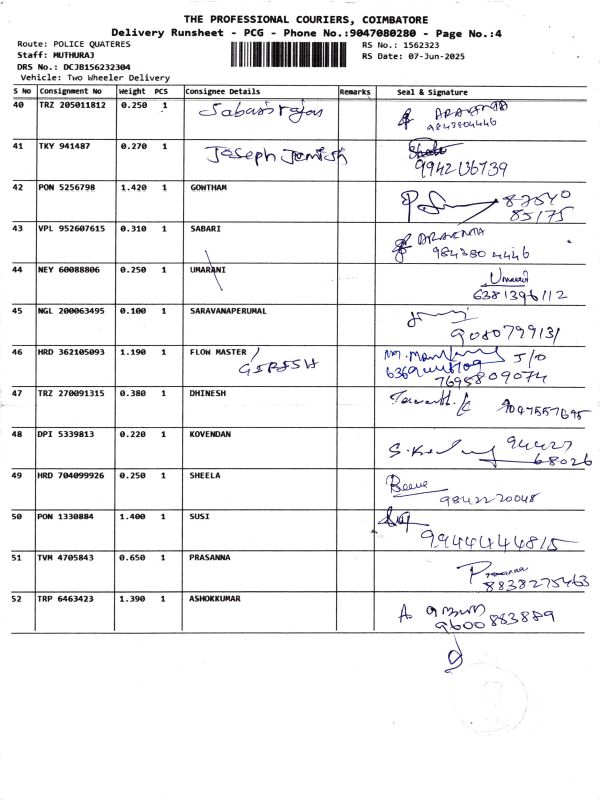 THE PROFESSIONAL COURIERS, COIMBATORE
Delivery Runsheet - PCG - Phone No.:9047080280 - Page No.:4
Route: POLICE QUATERES
RS No.: 1562323
Staff: MUTHURAJ
RS Date: 07-Jun-2025
DRS No.: DCJB156232304
Vehicle: Two Wheeler Delivery
S No Consignment No Weight PCS Consignee Details Remarks Seal & Signature
40 TRZ 205011812 0.250 1 ARAVENTA
9843804446
41 TKY 941487 0.270 1 Joseph Jemish
9942136739
42 PON 5256798 1.420 1 GOWTHAM 87540
85175
43 VPL 952607615 0.310 1 SABARI ARAVENTA
9843804446
44 NEY 60088806 0.250 1 UMARANI Umarani
6381396112
45 NGL 200063495 0.100 1 SARAVANAPERUMAL
9080799131
46 HRD 362105093 1.190 1 FLOW MASTER/
GIRISH
7695809074
47 TRZ 270091315 0.380 1 DHINESH
9047557695
48 DPI 5339813 0.220 1 KOVENDAN 94427
68026
49 HRD 704099926 0.250 1 SHEELA
9842270048
50 PON 1330884 1.400 1 SUSI
9944444815
51 TVM 4705843 0.650 1 PRASANNA Prasanna
8838275463
52 TRP 6463423 1.390 1 ASHOKKUMAR
9600883889